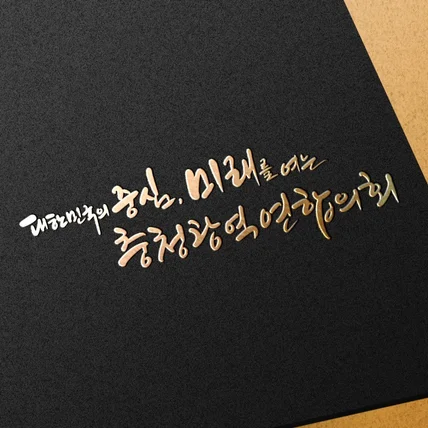 대한민국의 중심, 미래를 여는
충청광역연합의회